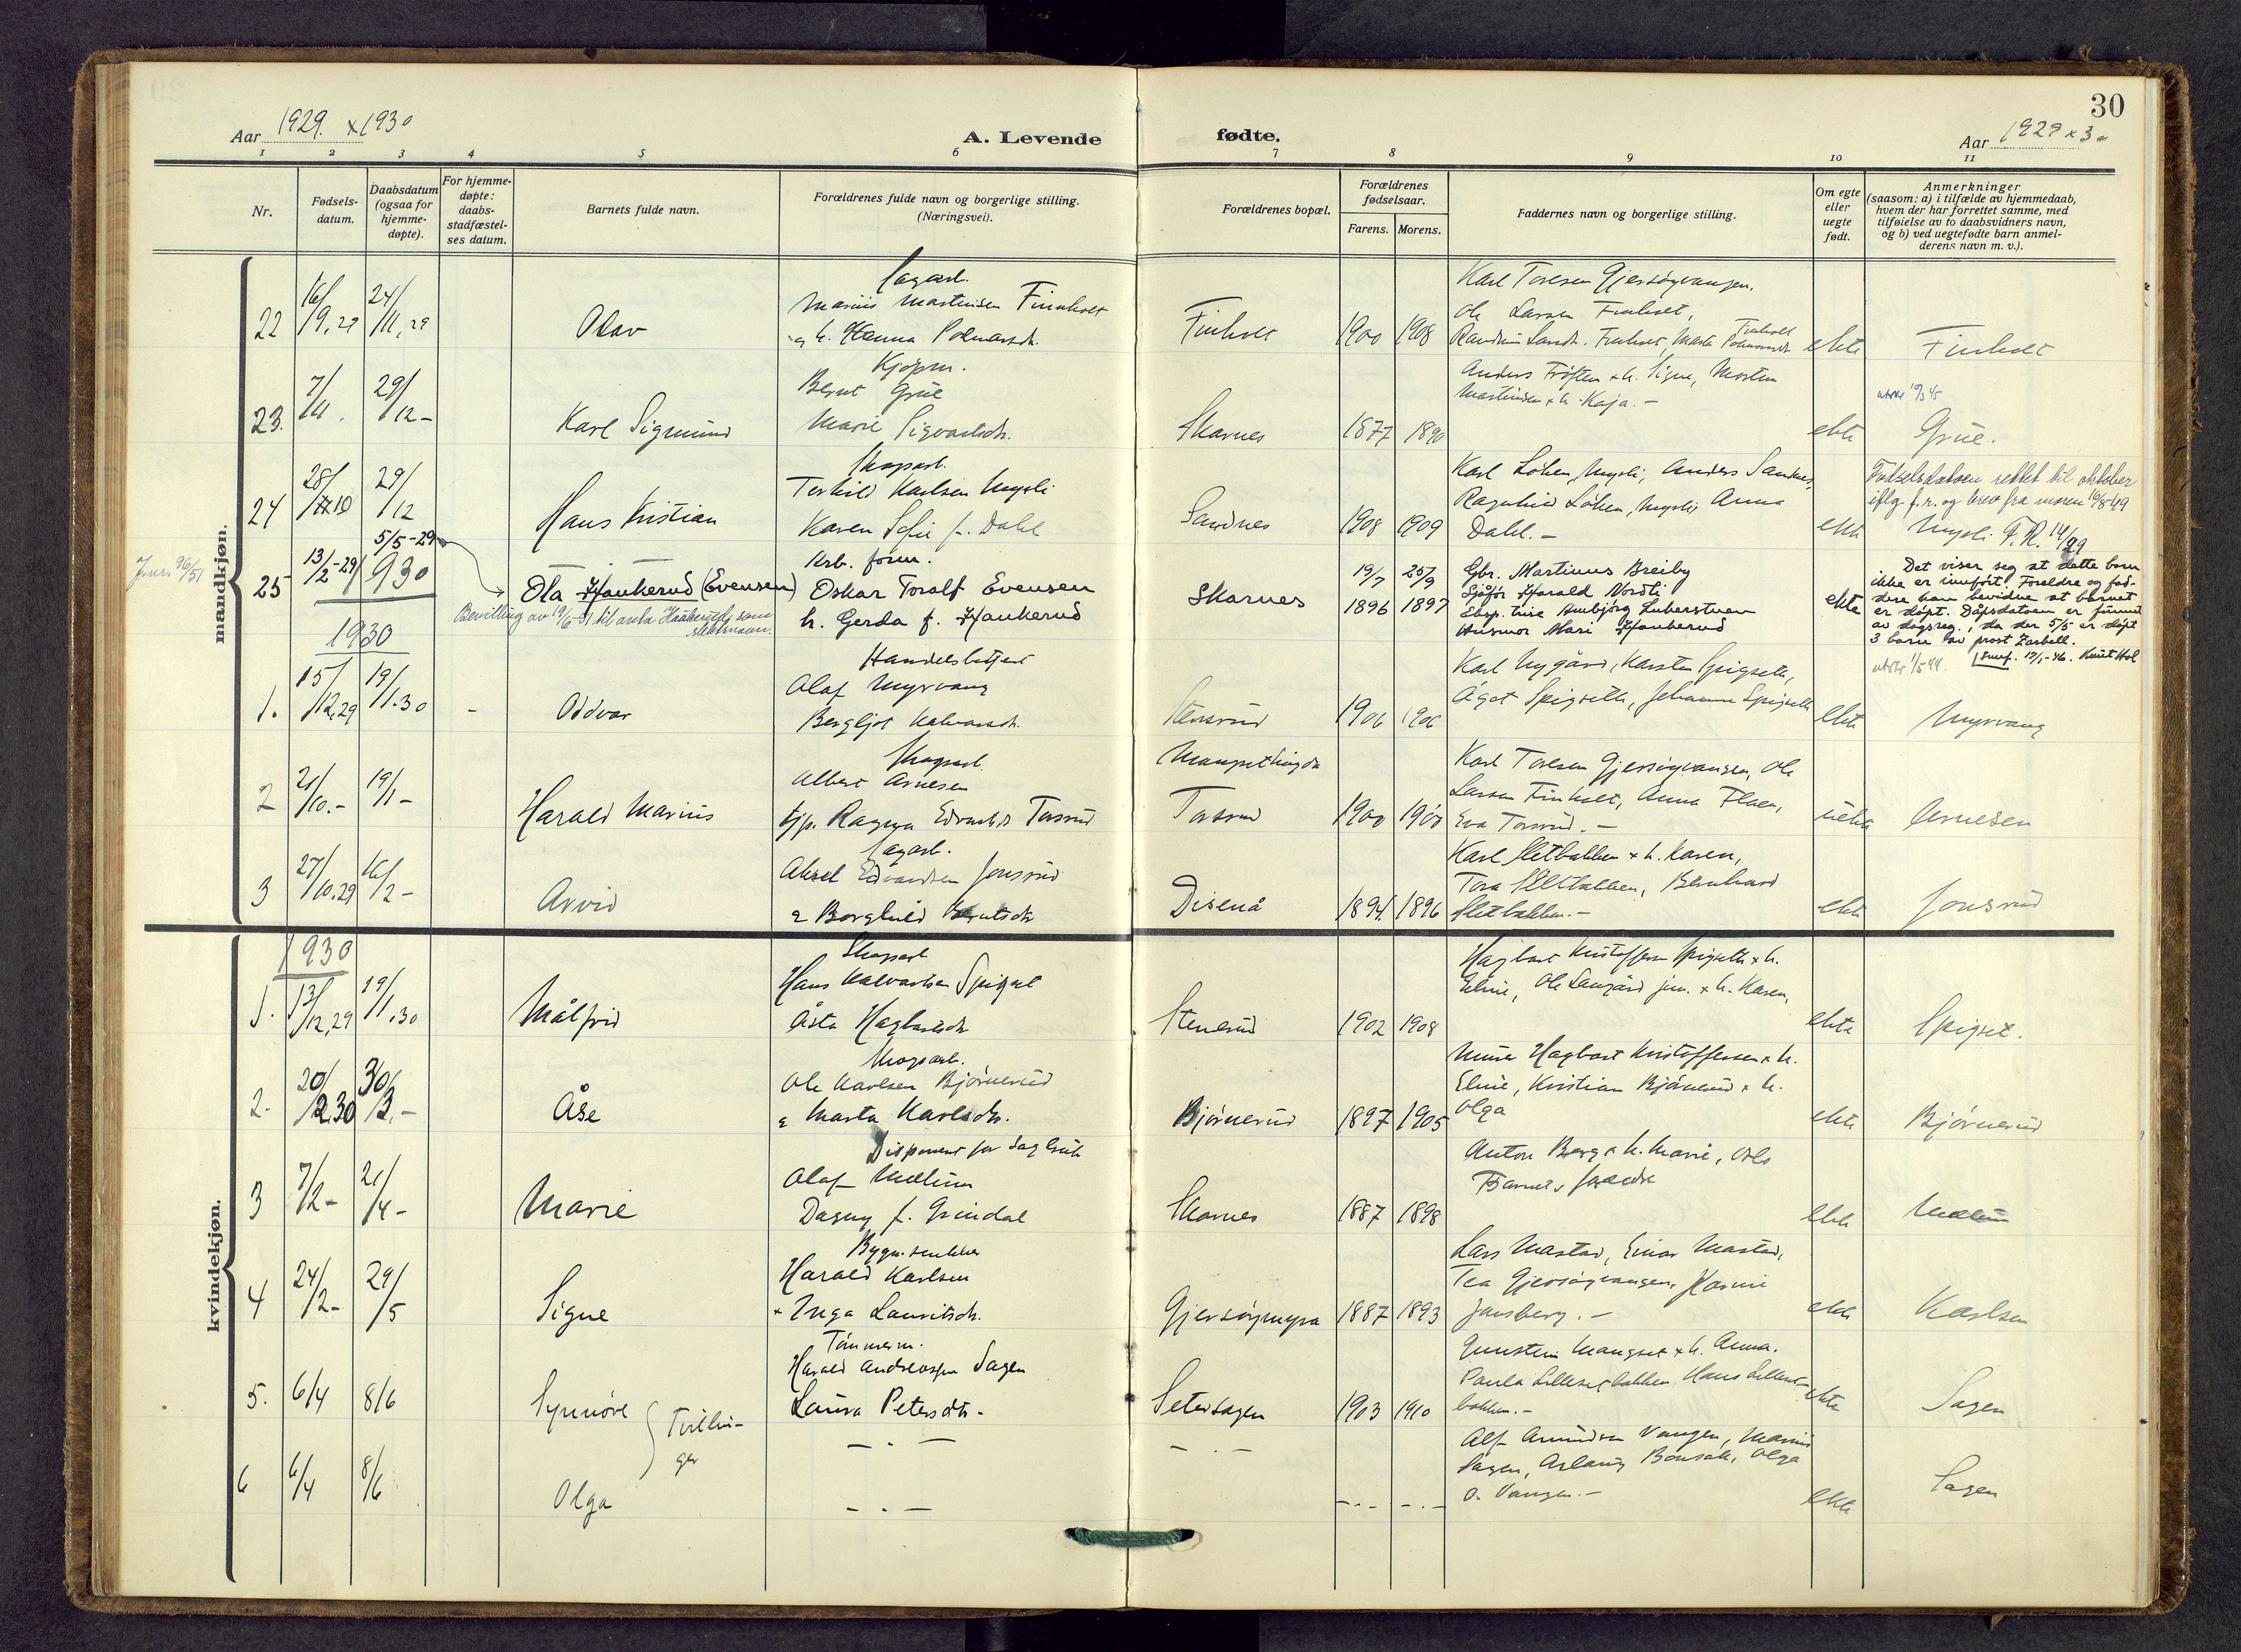 30
Aar 1929. x 1930
A. Levende
fødte.
Aar 1929 x 30
1 2 3 4 5 6 7 8 9 10 11
Nr.
Fødsels-
datum.
Daabsdatum
(ogsaa for
hjemme-
døpte).
For hjemme-
døpte:
daabs-
stadfæstel-
ses datum.
Barnets fulde navn.
Forældrenes fulde navn og borgerlige stilling.
(Næringsvei).
Forældrenes bopæl.
Forældrenes
fødselsaar.
Farens. Morens.
Faddernes navn og borgerlige stilling.
Om egte
eller
uegte
født.
Anmerkninger
(saasom: a) i tilfælde av hjemmedaab,
hvem der har forrettet samme, med
tilføielse av to daabsvidners navn,
og b) ved uegtefødte barn anmel-
derens navn m. v.).
mandkjøn.
22 16/9.29 24/11.29 Olav
Sagarb.
Marius Martinsen Finnholt
h. Hanna
Finholt 1900 1908
Karl Toresen Gjersøyvangen,
Ole Larsen Finholt,
ekte Finholt
23. 7/11. 29/12-
Karl Sigmund
Kjøpm.
Bernt Grue
Marie Sigvartsdr.
Skarnes 1877 1890
Anders Trøften x h. Signe, Morten
Martinsen x h. Kaja. -
ekte Grue.
24 28/10 29/12
Hans Kristian
Skogarb.
Terkild Karlsen Myrli
Karen Sofie f. Dahl
Sandnes 1908 1909
Karl Lohen, Myrli, Anders Sandnes,
Ragnhild Lohen, Myrli, Anna
Dahl. -
ekte
Fødselsdatoen rettet til oktober
iflg. f.r. og brev fra moren 16/8-49
Myrli. F.R. 14/29
Jnr. 96/51
25 13/2-29 5/5-29
Ola Haukerud (Evensen)
Arb. form.
Oskar Toralf Evensen
h. Gerda f. Haukerud
Skarnes
19/7 1896 25/9 1897
Gbr. Martinus Breiby
Sjåfør Harald Nordli
Husmor Mari Haukerud
ekte
Det viser seg at dette barn
ikke er innført. Foreldre og fad-
dere kan bevidne at barnet
er døpt. Dåpsdatoen er funnet
av dagsreg., da der 5/5 er døpt
3 barn av prost
Innf. 19/1-46. Knut Hol
1930
1. 15/12.29 19/1.30 -
Oddvar
Handelsbetjent
Olaf Myrvang
Bergljot Halvorsdr.
Stensrud 1906 1906
Karl Nygård, Karsten Spigseth,
Ågot Spigseth, Johanne Spigseth
ekte Myrvang
2 21/10.- 19/1-
Harald Marius
Skogarb.
Albert Arnesen
tjp. Ragna Edvardsdr. Tosrud
Tosrud 1900
Karl Toresen Gjersøyvangen, Ole
Larsen Finholt, Anna Flaen,
Eva Tosrud. -
uekte Arnesen
3 27/10.29 16/2-
Arvid
Sagarb.
Aksel Edvardsen Jonsrud
& Borghild Berntsdr
Disenå 1894. 1896
Karl Sletbakken x h. Karen,
Tora Sletbakken, Bernhard
Sletbakken. -
ekte Jonsrud
kvindekjøn.
1930
1. 13/12.29 19/1.30
Målfrid
Skogarb
Hans Halvorsen Spigset
Åsta Hagbartsdr
Stensrud 1902 1908
Hagbart Kristoffersen Spigseth x h.
Eline, Ole Langård jun. x h. Karen,
ekte Spigset.
2. 20/2.30 30/3.-
Åse
Skogarb.
Ole Karlsen Bjørnerud
& Marta Karlsdr.
Bjørnerud 1897 1905
Murer Hagbart Kristoffersen x h.
Eline, Kristian Bjørnerud x h.
Olga
ekte Bjørnerud
3 7/2- 21/4-
Marie
Disponent for Sagbruk
Olaf Mælum
Dagny f. Grindal
Skarnes 1887 1898
Anton Berg x h. Marie, Oslo
Barnets foreldre
ekte Mælum
4 24/2- 29/5
Signe
Bygn. snekker
Harald Karlsen
x Inga Lauritsdr.
Gjersøymyra 1887 1893
Lars Mastad, Einar Mastad,
Tea Gjersøyvangen,
Jonsberg. -
ekte Karlsen
5. 6/4 8/6
Synnøve
Tvillin-
ger
Tømmerm.
Harald Andreassen Sagen
Laura Petersdtr.
Setersagen 1903 1910
Gunstein Mangset x h. Anna.
Paula Lillesetbakken Hans Lilleset-
bakken. -
ekte Sagen
6 6/4 8/6
Olga
- . -
Alf Amundsen Vangen, Marius
Sagen, Aslaug Bonsak, Olga
O. Vangen. -
ekte Sagen